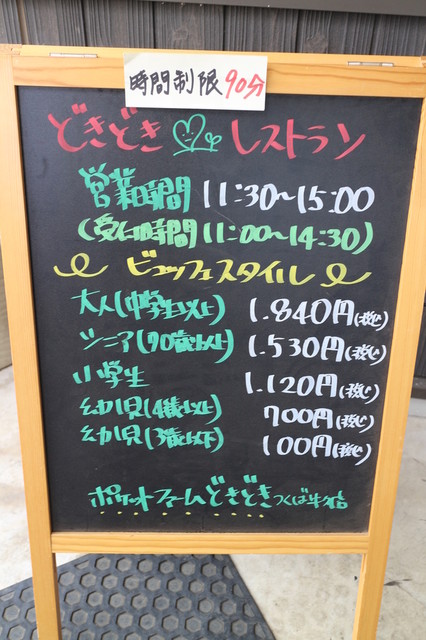 時間制限 90分
どきどき レストラン
営業時間 11:30~15:00
(受付時間 11:00~14:30)
ビュッフェスタイル
大人(中学生以上) 1.840円(税込)
シニア(70歳以上) 1.530円(税込)
小学生 1.120円(税込)
幼児(4歳以上) 700円(税込)
幼児(3歳以下) 100円(税込)
ポケットファームどきどきつくば牛久店